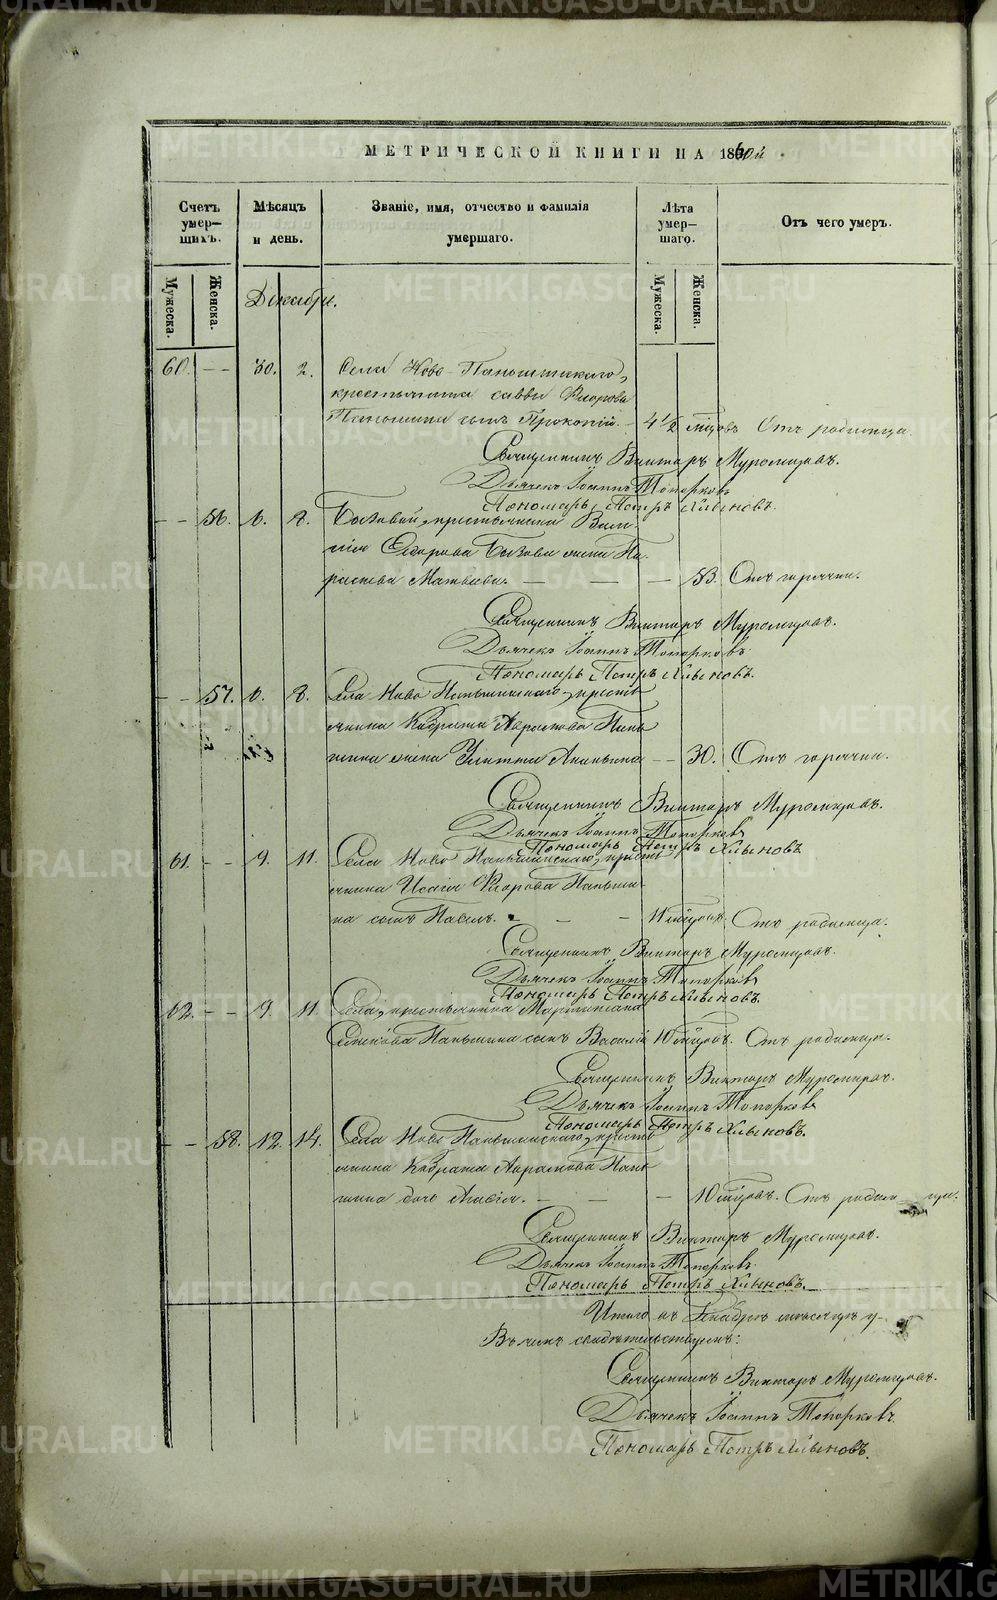 МЕТРИЧЕСКОЙ КНИГИ НА 1860й.
Счетъ умер-шихъ.
Мѣсяцъ и день.
Званіе, имя, отчество и фамилія умершаго.
Лѣта умер-шаго.
Отъ чего умеръ.
Мужеска. Женска. Мужеска. Женска.
Декабрь.
60. — — 30. 2. Села Ново-Паньшинскаго,
крестьянина Савви Фло­рова
Паньшина сынъ Прокопій. — 4½ мѣсцовъ Отъ родимца.
Священникъ Викторъ Муромцовъ.
Дьячекъ Іоаннъ Топорковъ
Пономарь Петръ Хлыновъ.
— — 56. 6. 8. крестьянина
Егорова жена Па-
раскева Матвѣева. — — — 53. Отъ горячки.
Священникъ Викторъ Муромцовъ.
Дьячекъ Іоаннъ Топорковъ
Пономарь Петръ Хлыновъ.
— — 57. 6. 8. Села Ново Паньшинскаго, кресть
янина Кодрата Аврамова Пань
шина жена Улитта Ананьина — — 30. Отъ горячки.
Священникъ Викторъ Муромцовъ.
Дьячекъ Іоаннъ Топорковъ
Пономарь Петръ Хлыновъ
61. — — 9. 11. Села Ново Паньшинскаго, кресть
янина Исаія Флорова Паньши-
на сынъ Павелъ. — — Отъ родимца.
Священникъ Викторъ Муромцовъ.
Дьячекъ Іоаннъ Топорковъ
Пономарь Петръ Хлыновъ.
62. — — 9. 11. Села, крестьянина Мартиніана
Паньшина сынъ Василій 10 мѣсцовъ. Отъ родимца.
Священникъ Викторъ Муромцовъ.
Дьячекъ Іоаннъ Топорковъ
Пономарь Петръ Хлыновъ.
— — 58. 12. 14. Села Ново Паньшинскаго, кресть
янина Кодрата Аврамова Пань
шина дочь — — — 10 мѣсцовъ. Отъ родимца.
Священникъ Викторъ Муромцовъ.
Дьячекъ Іоаннъ Топорковъ
Пономарь Петръ Хлыновъ.
Итого въ Декабрѣ мѣсяцѣ у-
Въ чемъ свидѣтельствуемъ:
Священникъ Викторъ Муромцовъ.
Дьячекъ Іоаннъ Топорковъ
Пономарь Петръ Хлыновъ.
METRIKI.GASO-URAL.RU